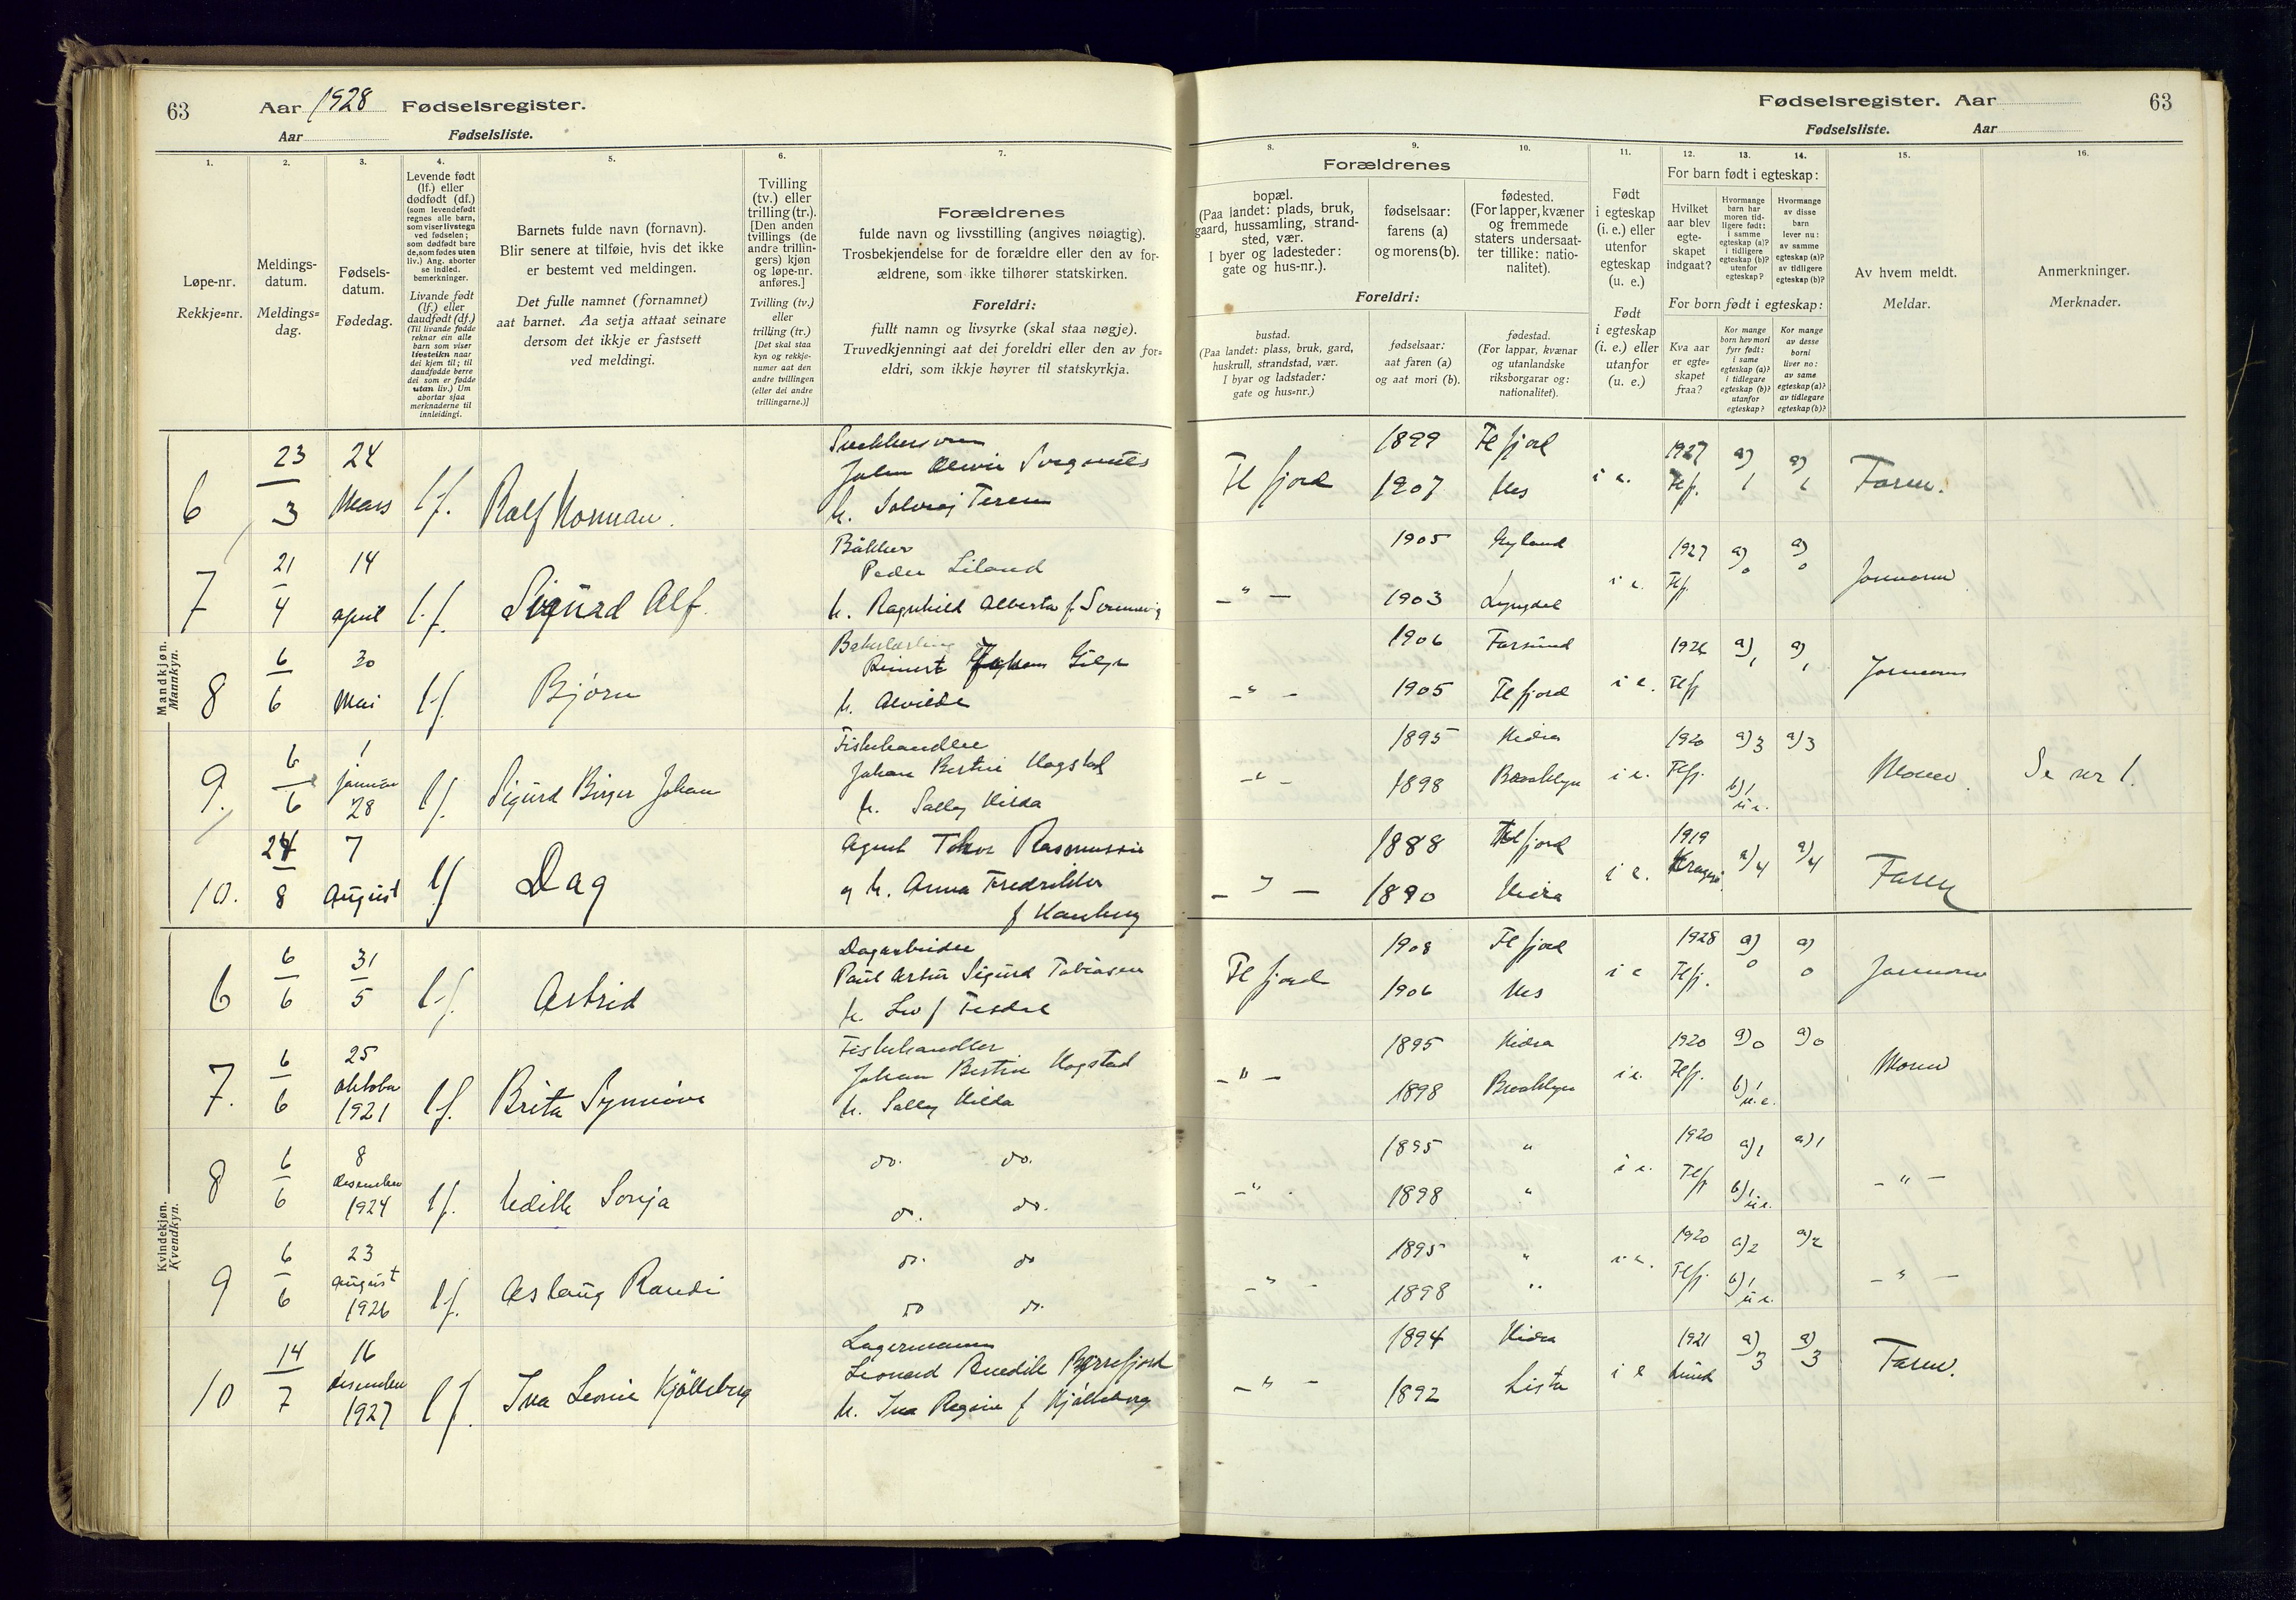 63
Aar 1928 Fødselsregister.
Aar Fødselsliste.
1.
2.
3.
4.
5.
6.
7.
Løpe-nr.
Rekkje=nr.
Meldings-
datum.
Meldings=
dag.
Fødsels-
datum.
Fødedag.
Levende født
(lf.) eller
dødfødt (df.)
(som levendefødt
regnes alle barn,
som viser livstegn
ved fødselen;
som dødfødt bare
de, som fødes uten
liv.) Ang. aborter
se indled.
bemerkninger.
Livande født
(lf.) eller
daudfødt (df.)
(Til livande fødde
reknar ein alle
barn som viser
livsteikn naar
dei kjem til; til
daudfødde berre
dei som er fødde
utan liv.) Um
abortar sjaa
merknaderne til
innleidingi.
Barnets fulde navn (fornavn).
Blir senere at tilføie, hvis det ikke
er bestemt ved meldingen.
Det fulle namnet (fornamnet)
aat barnet. Aa setja attaat seinare
dersom det ikkje er fastsett
ved meldingi.
Tvilling
(tv.) eller
trilling (tr.).
[Den anden
tvillings (de
andre trillin-
gers) kjøn
og løpe-nr.
anføres.]
Tvilling (tv.)
eller
trilling (tr.)
[Det skal staa
kyn og rekkje-
numer aat den
andre tvillingen
(eller dei andre
trillingarne.)]
Forældrenes
fulde navn og livsstilling (angives nøiagtig).
Trosbekjendelse for de forældre eller den av for-
ældrene, som ikke tilhører statskirken.
Foreldri:
fullt namn og livsyrke (skal staa nøgje).
Truvedkjenningi aat dei foreldri eller den av for=
eldri, som ikkje høyrer til statskyrkja.
Mandkjøn.
Mannkyn.
6 23/3 24 Mars l.f. Ralf Norman.
M. Solveig Teresie
7 21/4 14 april l.f. Sigurd Alf.
Peder Liland
M. Ragnhild Alberta f.
8 6/6 30 Mai l.f. Bjørn
Reinert
M. Alvilde
9. 6/6 1 januar 28 l.f. Sigurd Birger Johan
Fiskehandler
Johan Bertin Hogstad
M. Sally Hilda
10. 24/8 7 August l.f. Dag
Agent Rasmussen
og M. Anna Fredrikke
Kvindekjøn.
Kvendkyn.
6 6/6 31/5 l.f. Astrid
Dagarbeider
Paul Artur Sigurd Tobiasen
7. 6/6 25 oktober 1921 l.f. Brita Synnøve
Fiskehandler
Johan Bertin Hogstad
M. Sally Hilda
8 6/6 8 desember 1924 l.f. Edith Sonja
do. do.
do. do.
9 6/6 23 August 1926 l.f. Aslaug Randi
do. do
do do.
10 14/7 16 desember 1927 l.f. Ina Leonie Kjølleberg
Lagermann
M. Ina Regine f Kjølleberg
Fødselsregister. Aar
63
Fødselsliste. Aar
8.
9.
10.
11.
12.
13.
14.
15.
16.
Forældrenes
bopæl.
(Paa landet: plads, bruk,
gaard, hussamling, strand-
sted, vær.
I byer og ladesteder:
gate og hus-nr.).
fødselsaar:
farens (a)
og morens (b).
fødested.
(For lapper, kvæner
og fremmede
staters undersaat-
ter tillike: natio-
nalitet).
Foreldri:
bustad.
(Paa landet: plass, bruk, gard,
huskrull, strandstad, vær.
I byar og ladstader:
gate og hus=nr.)
fødselsaar:
aat faren (a)
og aat mori (b).
fødestad.
(For lappar, kvænar
og utanlandske
riksborgarar og:
nationalitet).
Født
i egteskap
(i. e.) eller
utenfor
egteskap
(u. e.)
Født
i egteskap
(i. e.) eller
utanfor
(u. e.)
For barn født i egteskap:
Hvilket
aar blev
egte-
skapet
indgaat?
Hvormange
barn har
moren tid-
ligere født:
i samme
egteskap (a)?
i tidligere
egteskap (b)?
utenfor
egteskap?
Hvormange
av disse
barn
lever nu:
av samme
egteskap (a)?
av tidligere
egteskap (b)?
For born født i egteskap:
Kva aar
er egte-
skapet
fraa?
Kor mange
born hev mori
fyrr født:
i same
egteskap (a)?
i tidlegare
egteskap (b)?
utanfor
egteskap?
Kor mange
av desse
borni
liver no:
av same
egteskap (a)?
av tidlegare
egteskap (b)?
Av hvem meldt.
Meldar.
Anmerkninger.
Merknader.
Flfjord 1899 Flfjord i e. 1927 a) 1 a) 1 Faren.
1907 Nes Flfj.
1905 1927 a) 0 a) 0 Jormoren
— " — 1903 Lyngdal i e. Flfj.
1906 Farsund 1926 a) 1 a) 1 Jormoren
— " — 1905 Flfjord i e. Flfj
1895 Hidra 1920 a) 3 a) 3 Moren. Se nr 1.
— " — 1898 Brooklyn i e. Flfj. b) 1 u.e.
1888 Flfjord 1919 a) 4 a) 4 Faren
— " — 1890 Hidra i e. Kragerø
Flfjord 1908 Flfjord i e 1928 a) 0 a) 0 Jormoren
1906 Nes Flfj.
1895 Hidra 1920 a) 0 a) 0 Moren
— " — 1898 Brooklyn i e. Flfj. b) 1 u.e.
1895 " 1920 a) 1 a) 1
— " — 1898 " i e. Flfj b) 1 u.e. — " —
1895 " 1920 a) 2 a) 2
— " — 1898 " i e. Flfj. b) 1 u.e. — " —
1894 Hidra 1921 a) 3 a) 3 Faren.
— " — 1892 Lista i e Lund